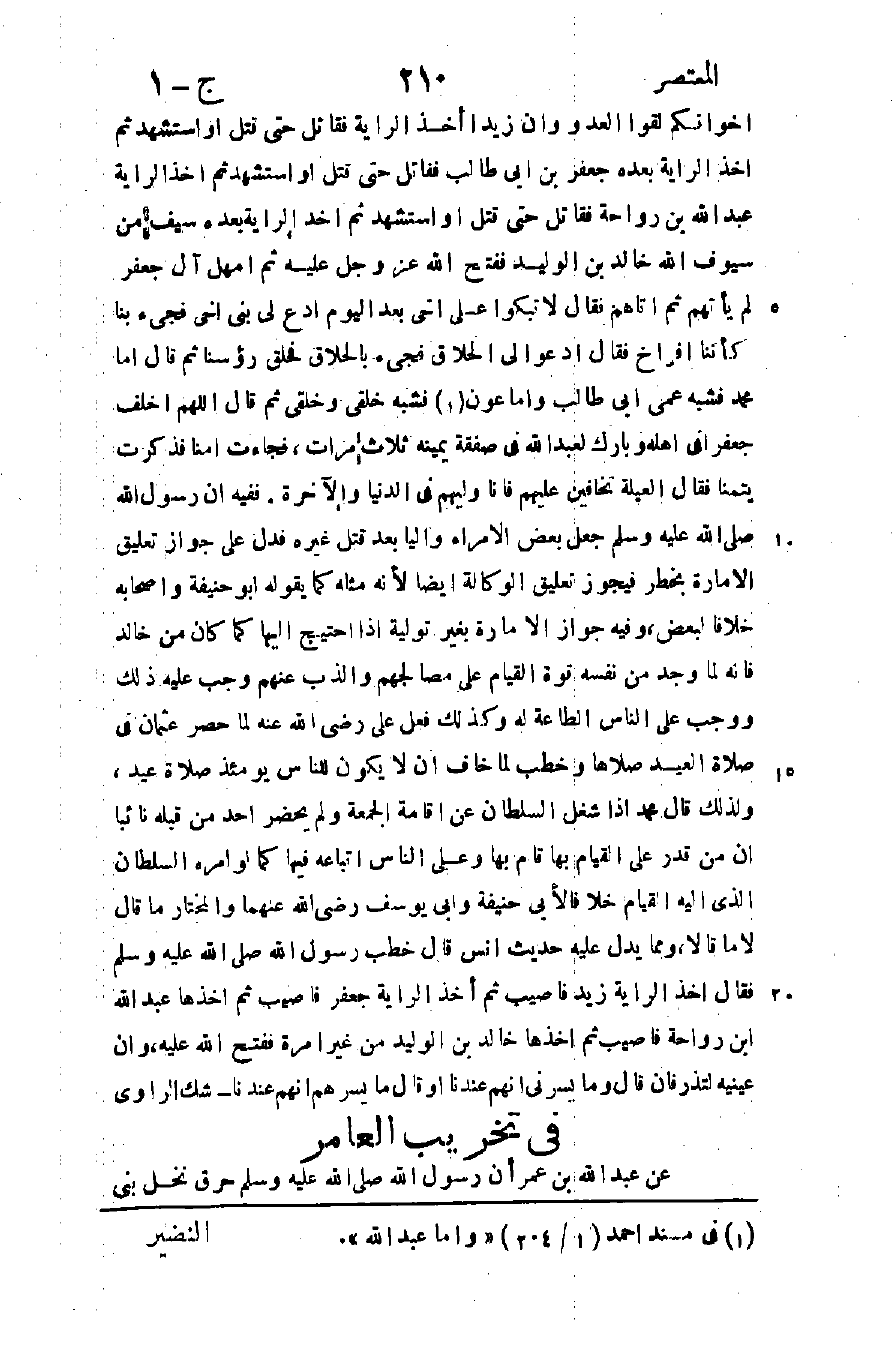 المعتصر ٢١٠ ج - ١
اخوانكم لقوا العدو وان زيدا أخذ الراية فقاتل حتى قتل او استشهد ثم
اخذ الراية بعده جعفر بن ابى طالب فقاتل حتى قتل او استشهد ثم اخذ الراية
عبد الله بن رواحة فقاتل حتى قتل او استشهد ثم اخذ الراية بعده سيف من
سيوف الله خالد بن الوليد ففتح الله عز وجل عليه ثم امهل آل جعفر
لم يأتهم ثم اتاهم فقال لا تبكوا على اخى بعد اليوم ادع لى بنى اخى فجىء بنا ٥
كأننا افراخ فقال ادعوا الى الحلاق فجىء بالحلاق فحلق رؤسنا ثم قال اما
محمد فشبه عمى ابى طالب واما عون (١) فشبه خلقى وخلقى ثم قال اللهم اخلف
جعفرا فى اهله وبارك لعبد الله فى صفقة يمينه ثلاث مرات ، فجاءت امنا فذكرت
يتمنا فقال العيلة تخافين عليهم فانا وليهم فى الدنيا والآخرة . ففيه ان رسول الله
صلى الله عليه وسلم جعل بعض الامراء واليا بعد قتل غيره فدل على جواز تعليق ١٠
الامارة بخطر فيجوز تعليق الوكالة ايضا لأنه مثله كما يقوله ابو حنيفة واصحابه
خلافا لبعض، وفيه جواز الامارة بغير تولية اذا احتيج اليها كما كان من خالد
فانه لما وجد من نفسه قوة القيام على مصالحهم والذب عنهم وجب عليه ذلك
ووجب على الناس الطاعة له وكذلك فعل على رضى الله عنه لما حصر عثمان فى
صلاة العيد صلاها وخطب لما خاف ان لا يكون للناس يومئذ صلاة عيد ، ١٥
ولذلك قال محمد اذا شغل السلطان عن اقامة الجمعة ولم يحضر احد من قبله نائبا
ان من قدر على القيام بها قام بها وعلى الناس اتباعه فيها كما لو امره السلطان
الذى اليه القيام خلافا لأبى حنيفة وابى يوسف رضى الله عنهما والمختار ما قال
لا ما قالا، ومما يدل عليه حديث انس قال خطب رسول الله صلى الله عليه وسلم
فقال اخذ الراية زيد فاصيب ثم أخذ الراية جعفر فاصيب ثم اخذها عبد الله ٢٠
ابن رواحة فاصيب ثم اخذها خالد بن الوليد من غير امرة ففتح الله عليه، وان
عينيه لتذرفان قال وما يسرنى انهم عندنا او قال ما يسرهم انهم عندنا ــ شك الراوى
فى تخريب العامر
عن عبد الله بن عمر أن رسول الله صلى الله عليه وسلم حرق نخل بنى
النضير
(١) فى مسند احمد (١/ ٢٠٤) « واما عبد الله ».